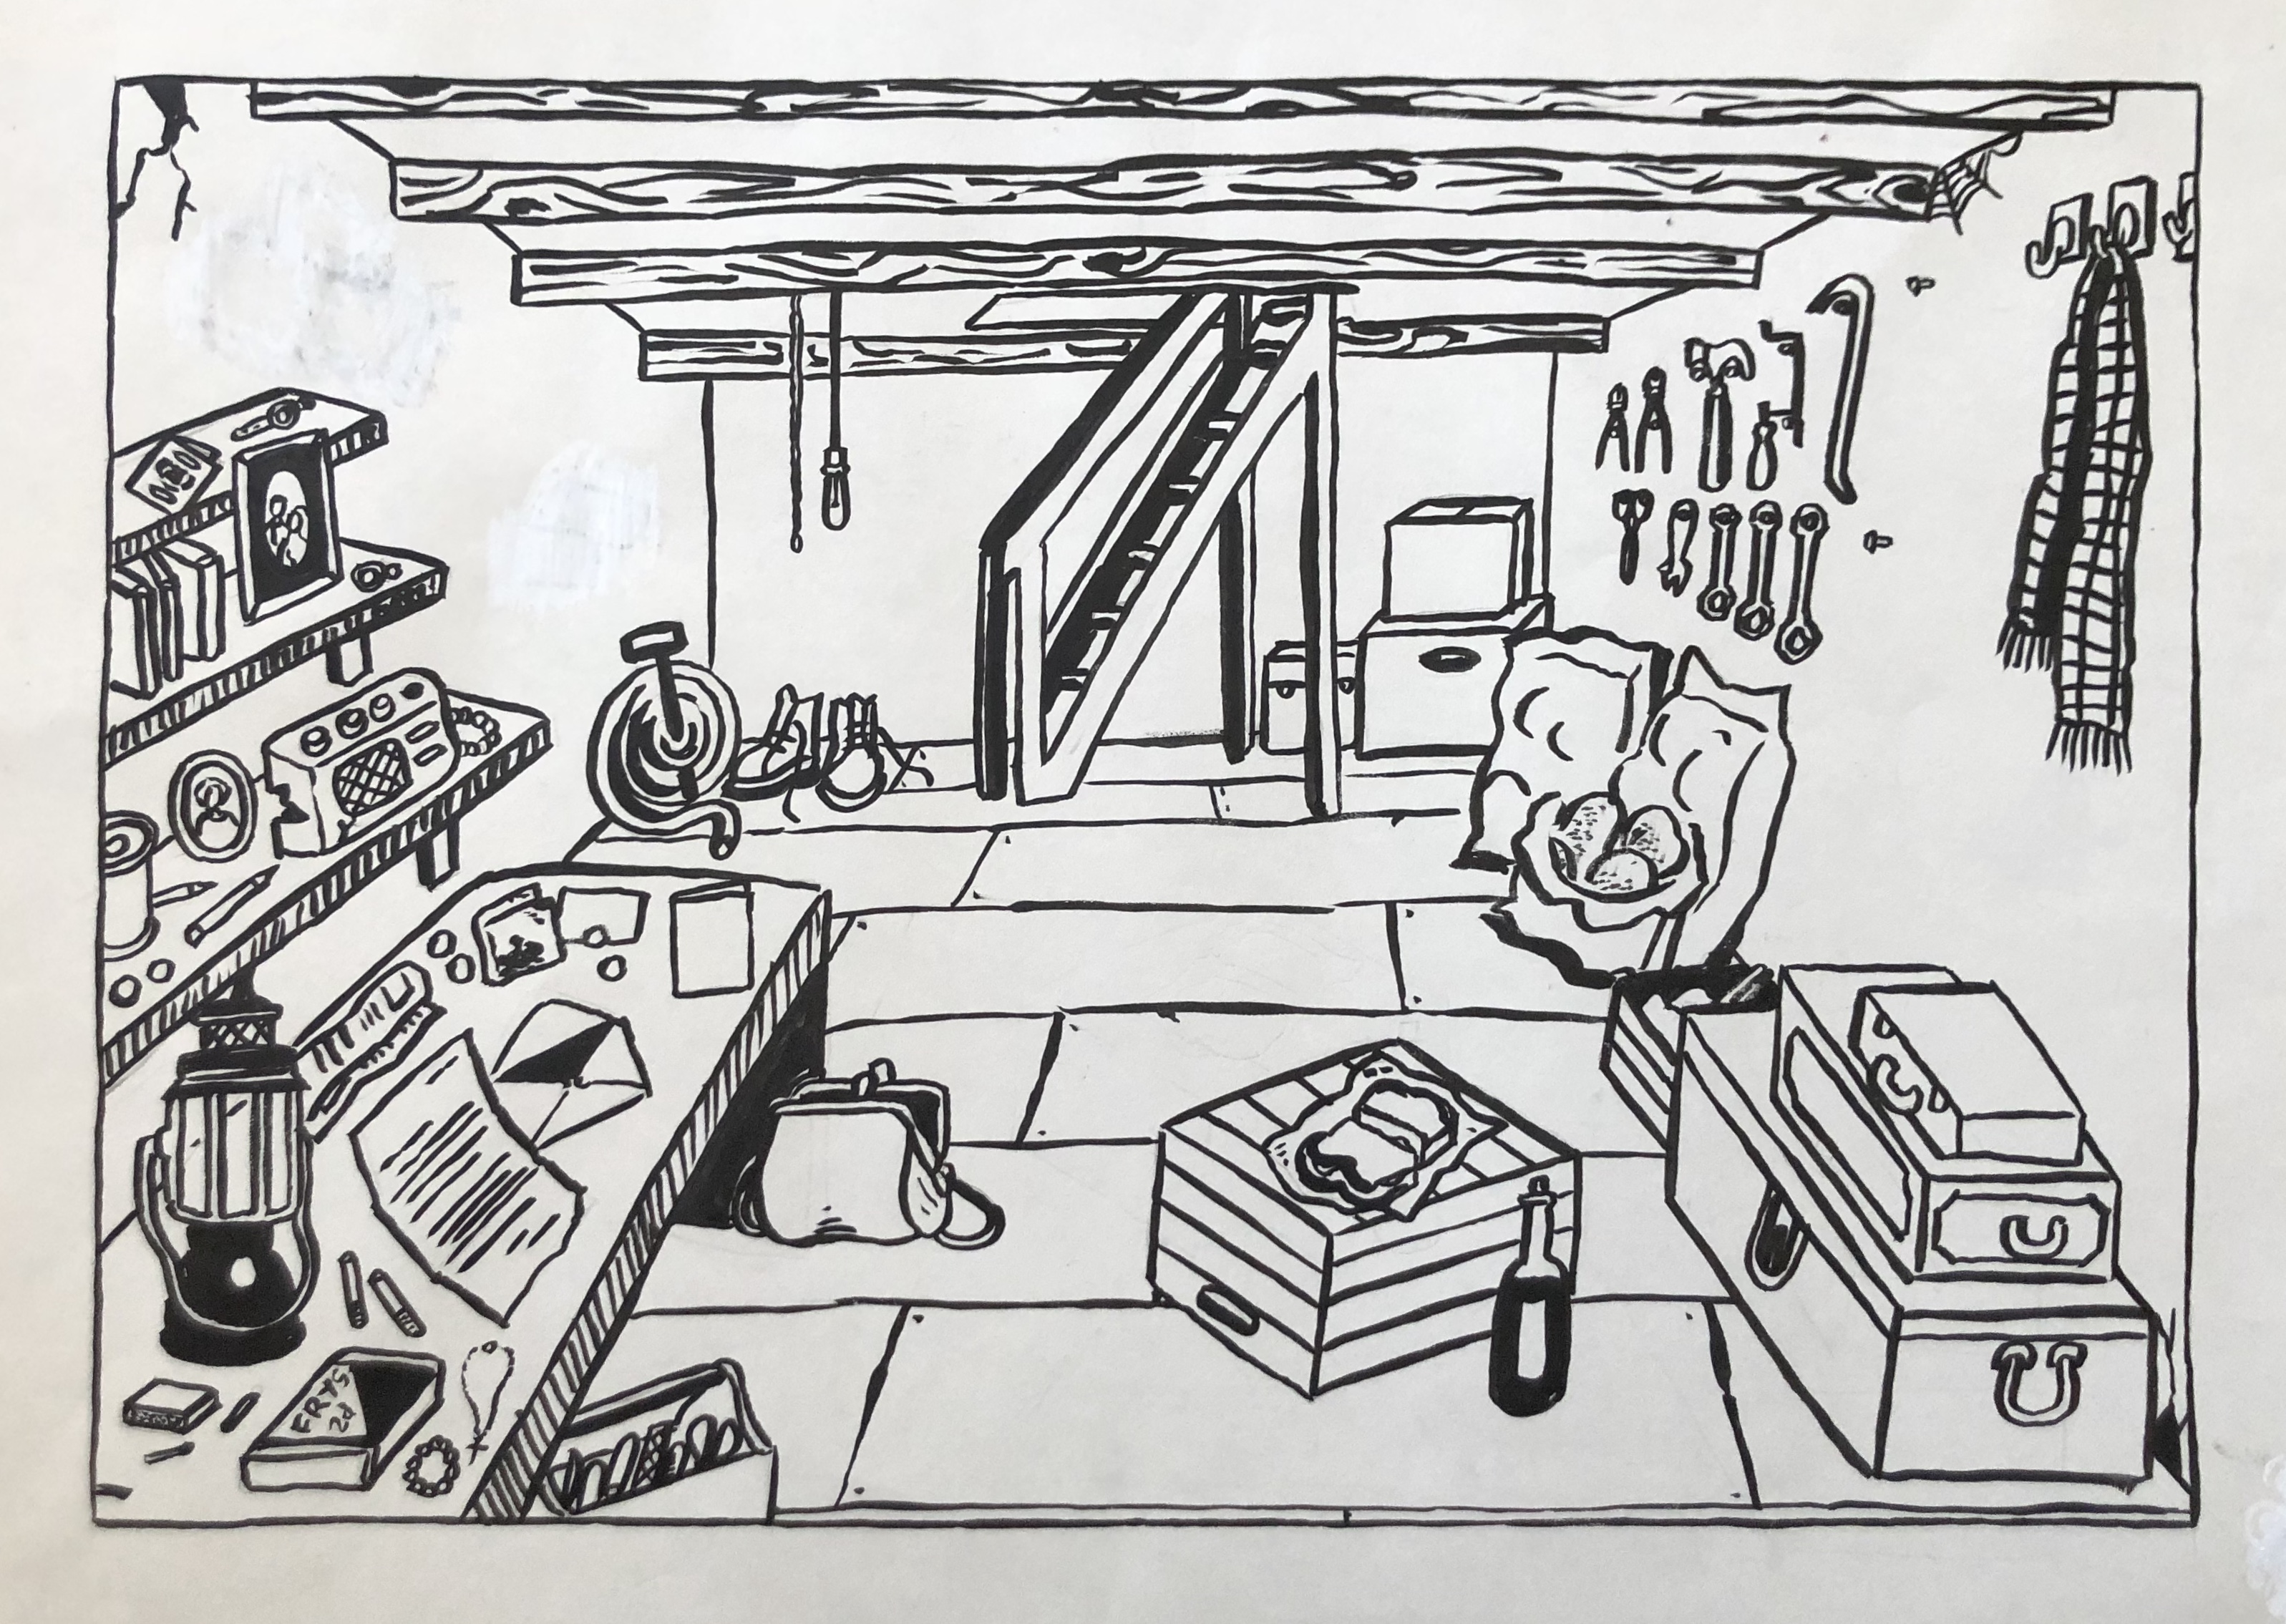 FRYS
2d